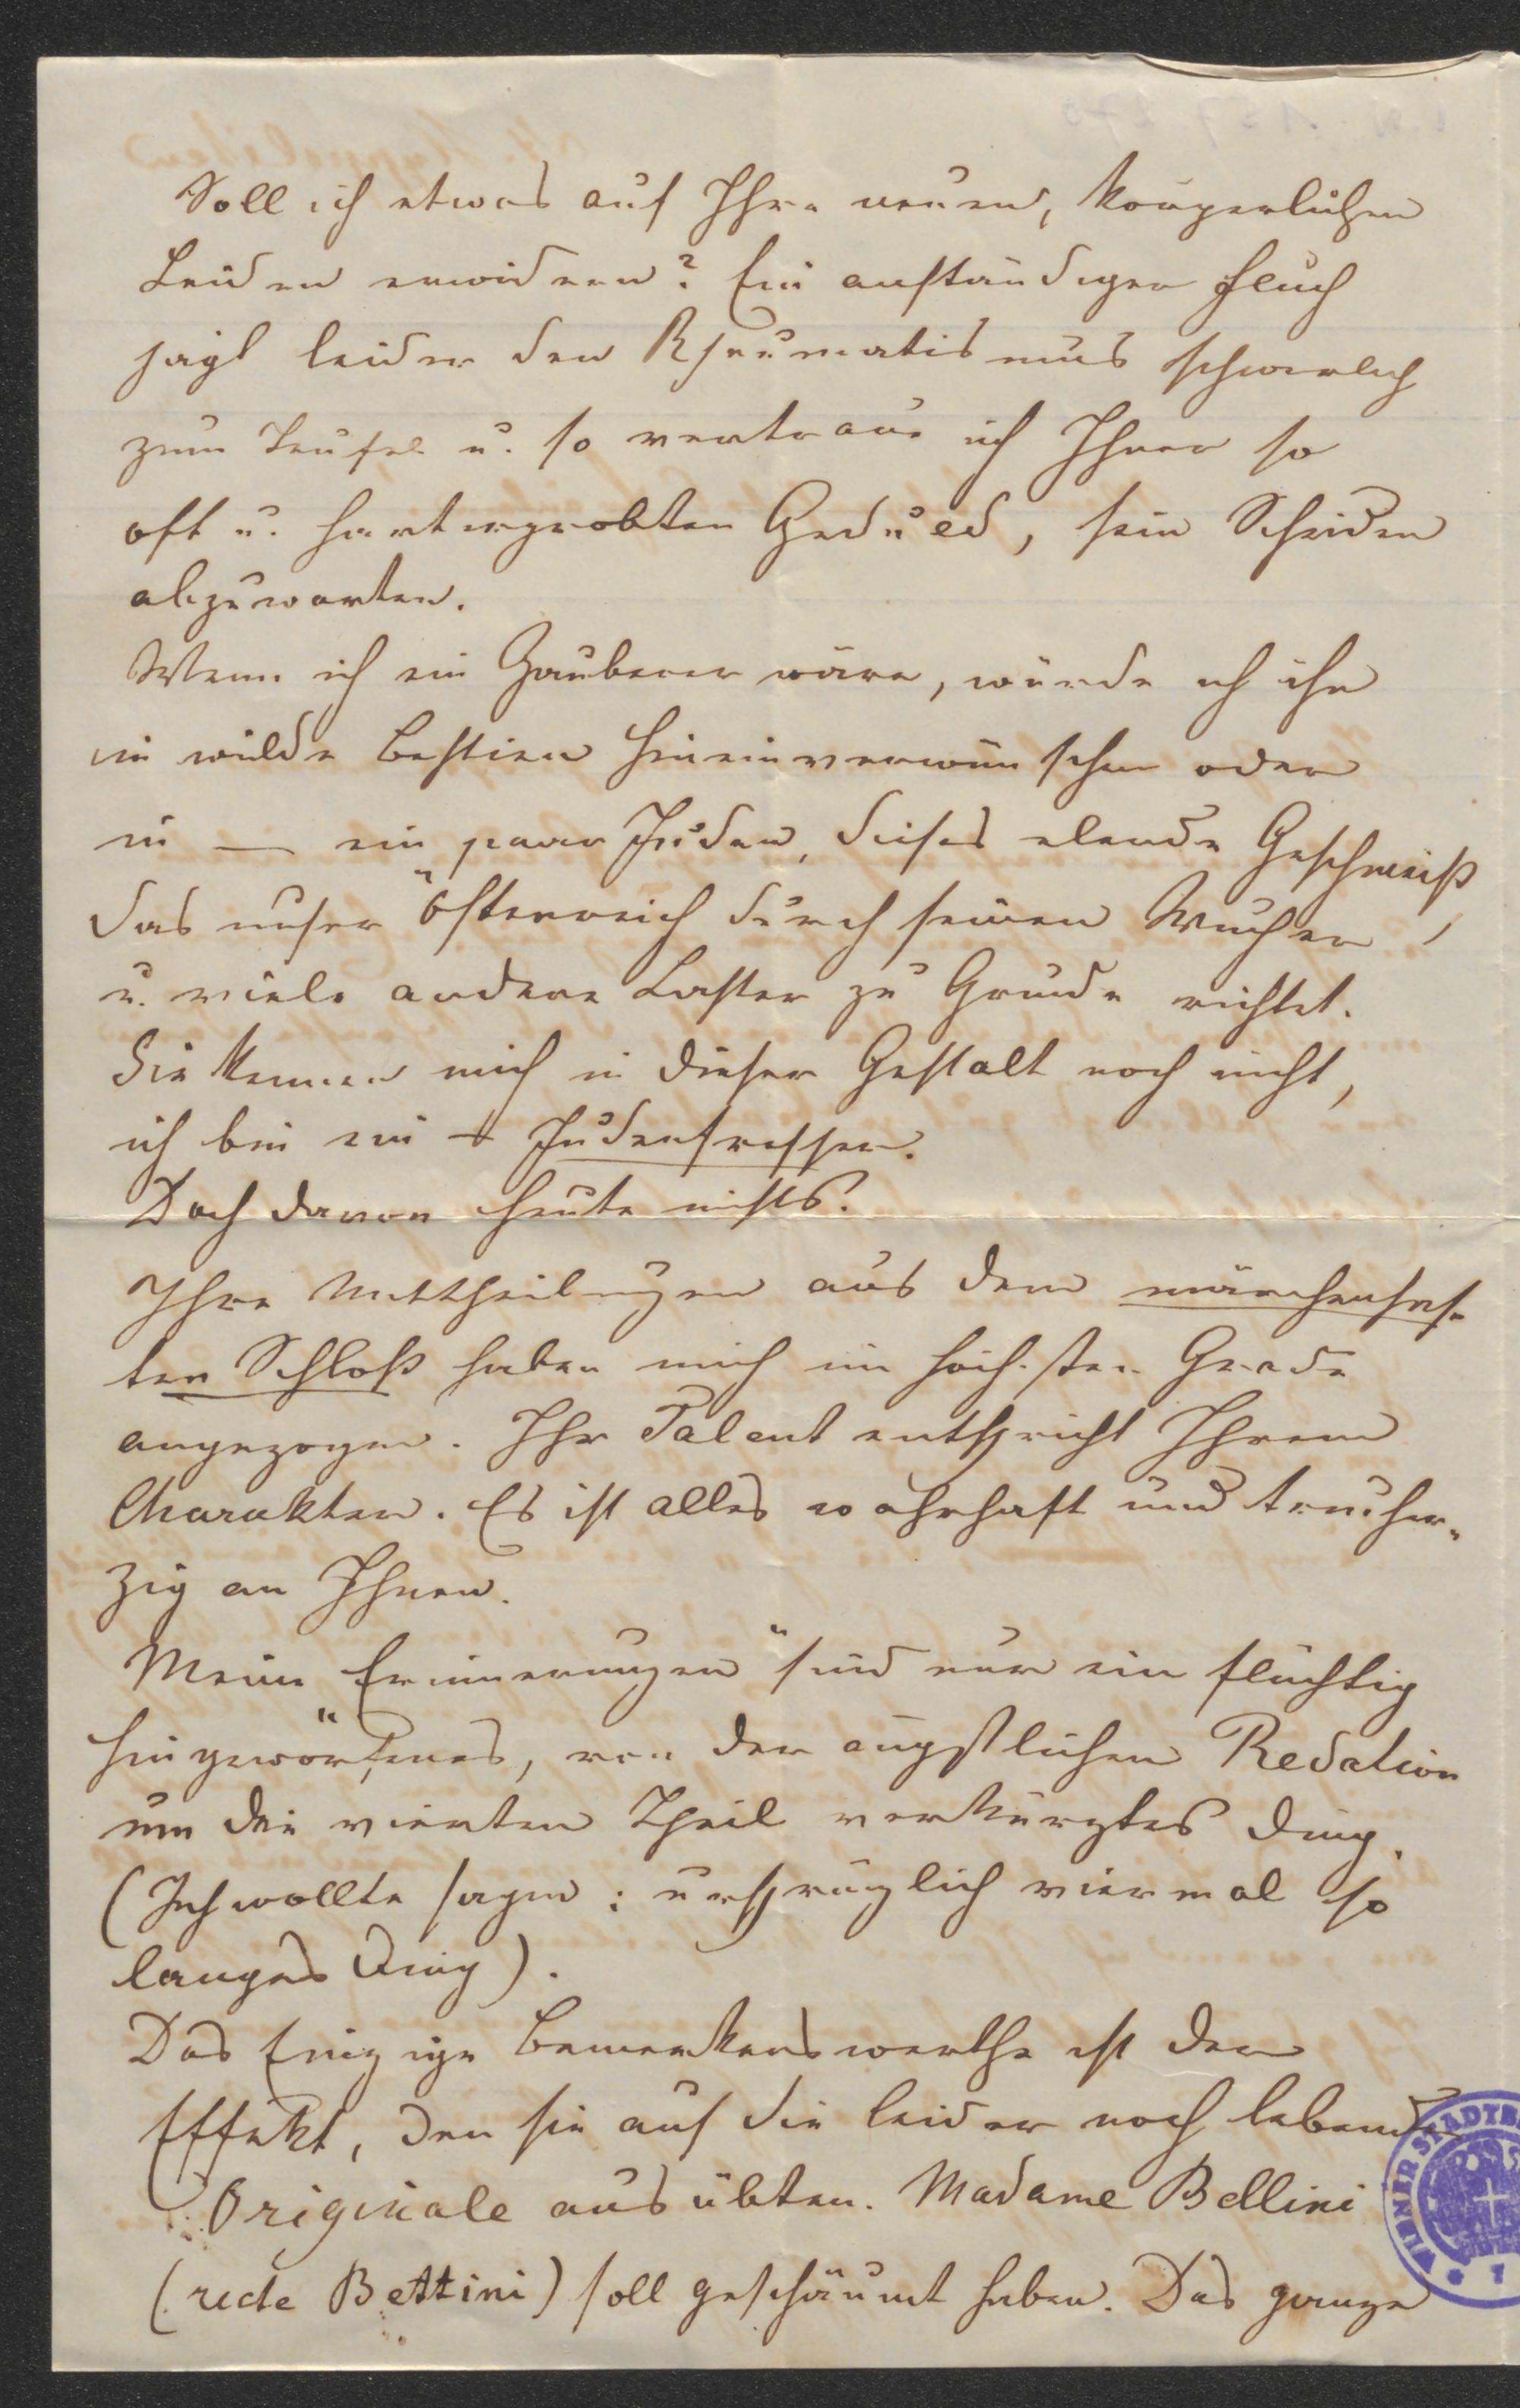 Soll ich etwas auf Ihre neuen, körperlichen
Leiden erwidern? Ein anständiger Fluch
jagt leider den Rheumatismus schwerlich
zum Teufel u. so vertraue ich Ihrer so
oft u. hart erprobten Geduld, sein Scheiden
abzuwarten.
Wenn ich ein Zauberer wäre, würde ich ihn
in wilde Bestien hineinverwünschen oder
in — ein paar Juden, dieses elende Geschmeiß
das unser Österreich durch seinen Wucher
u. viele andere Laster zu Grunde richtet.
Sie kennen mich in dieser Gestalt noch nicht,
ich bin ein – Judenfresser.
Doch davon heute nichts.
Ihre Mittheilungen aus dem märchenhaf-
ten Schloß haben mich im höchsten Grade
angezogen. Ihr Talent entspricht Ihrem
Charakter. Es ist alles wahrhaft und treuher-
zig an Ihnen.
Meine „Erinnerungen“ sind nur ein flüchtig
hingeworfenes, von der ängstlichen Redation
um die vierten Theil verkürztes Ding.
(Ich wollte sagen: ursprünglich viermal so
langes Ding).
Das Einzige Bemerkenswerthe ist der
Effekt, den sie auf die leider noch lebenden
Originale ausübten. Madame Bellini
(recte Bettini) soll geschäumt haben. Das ganze
WIENER STADTB